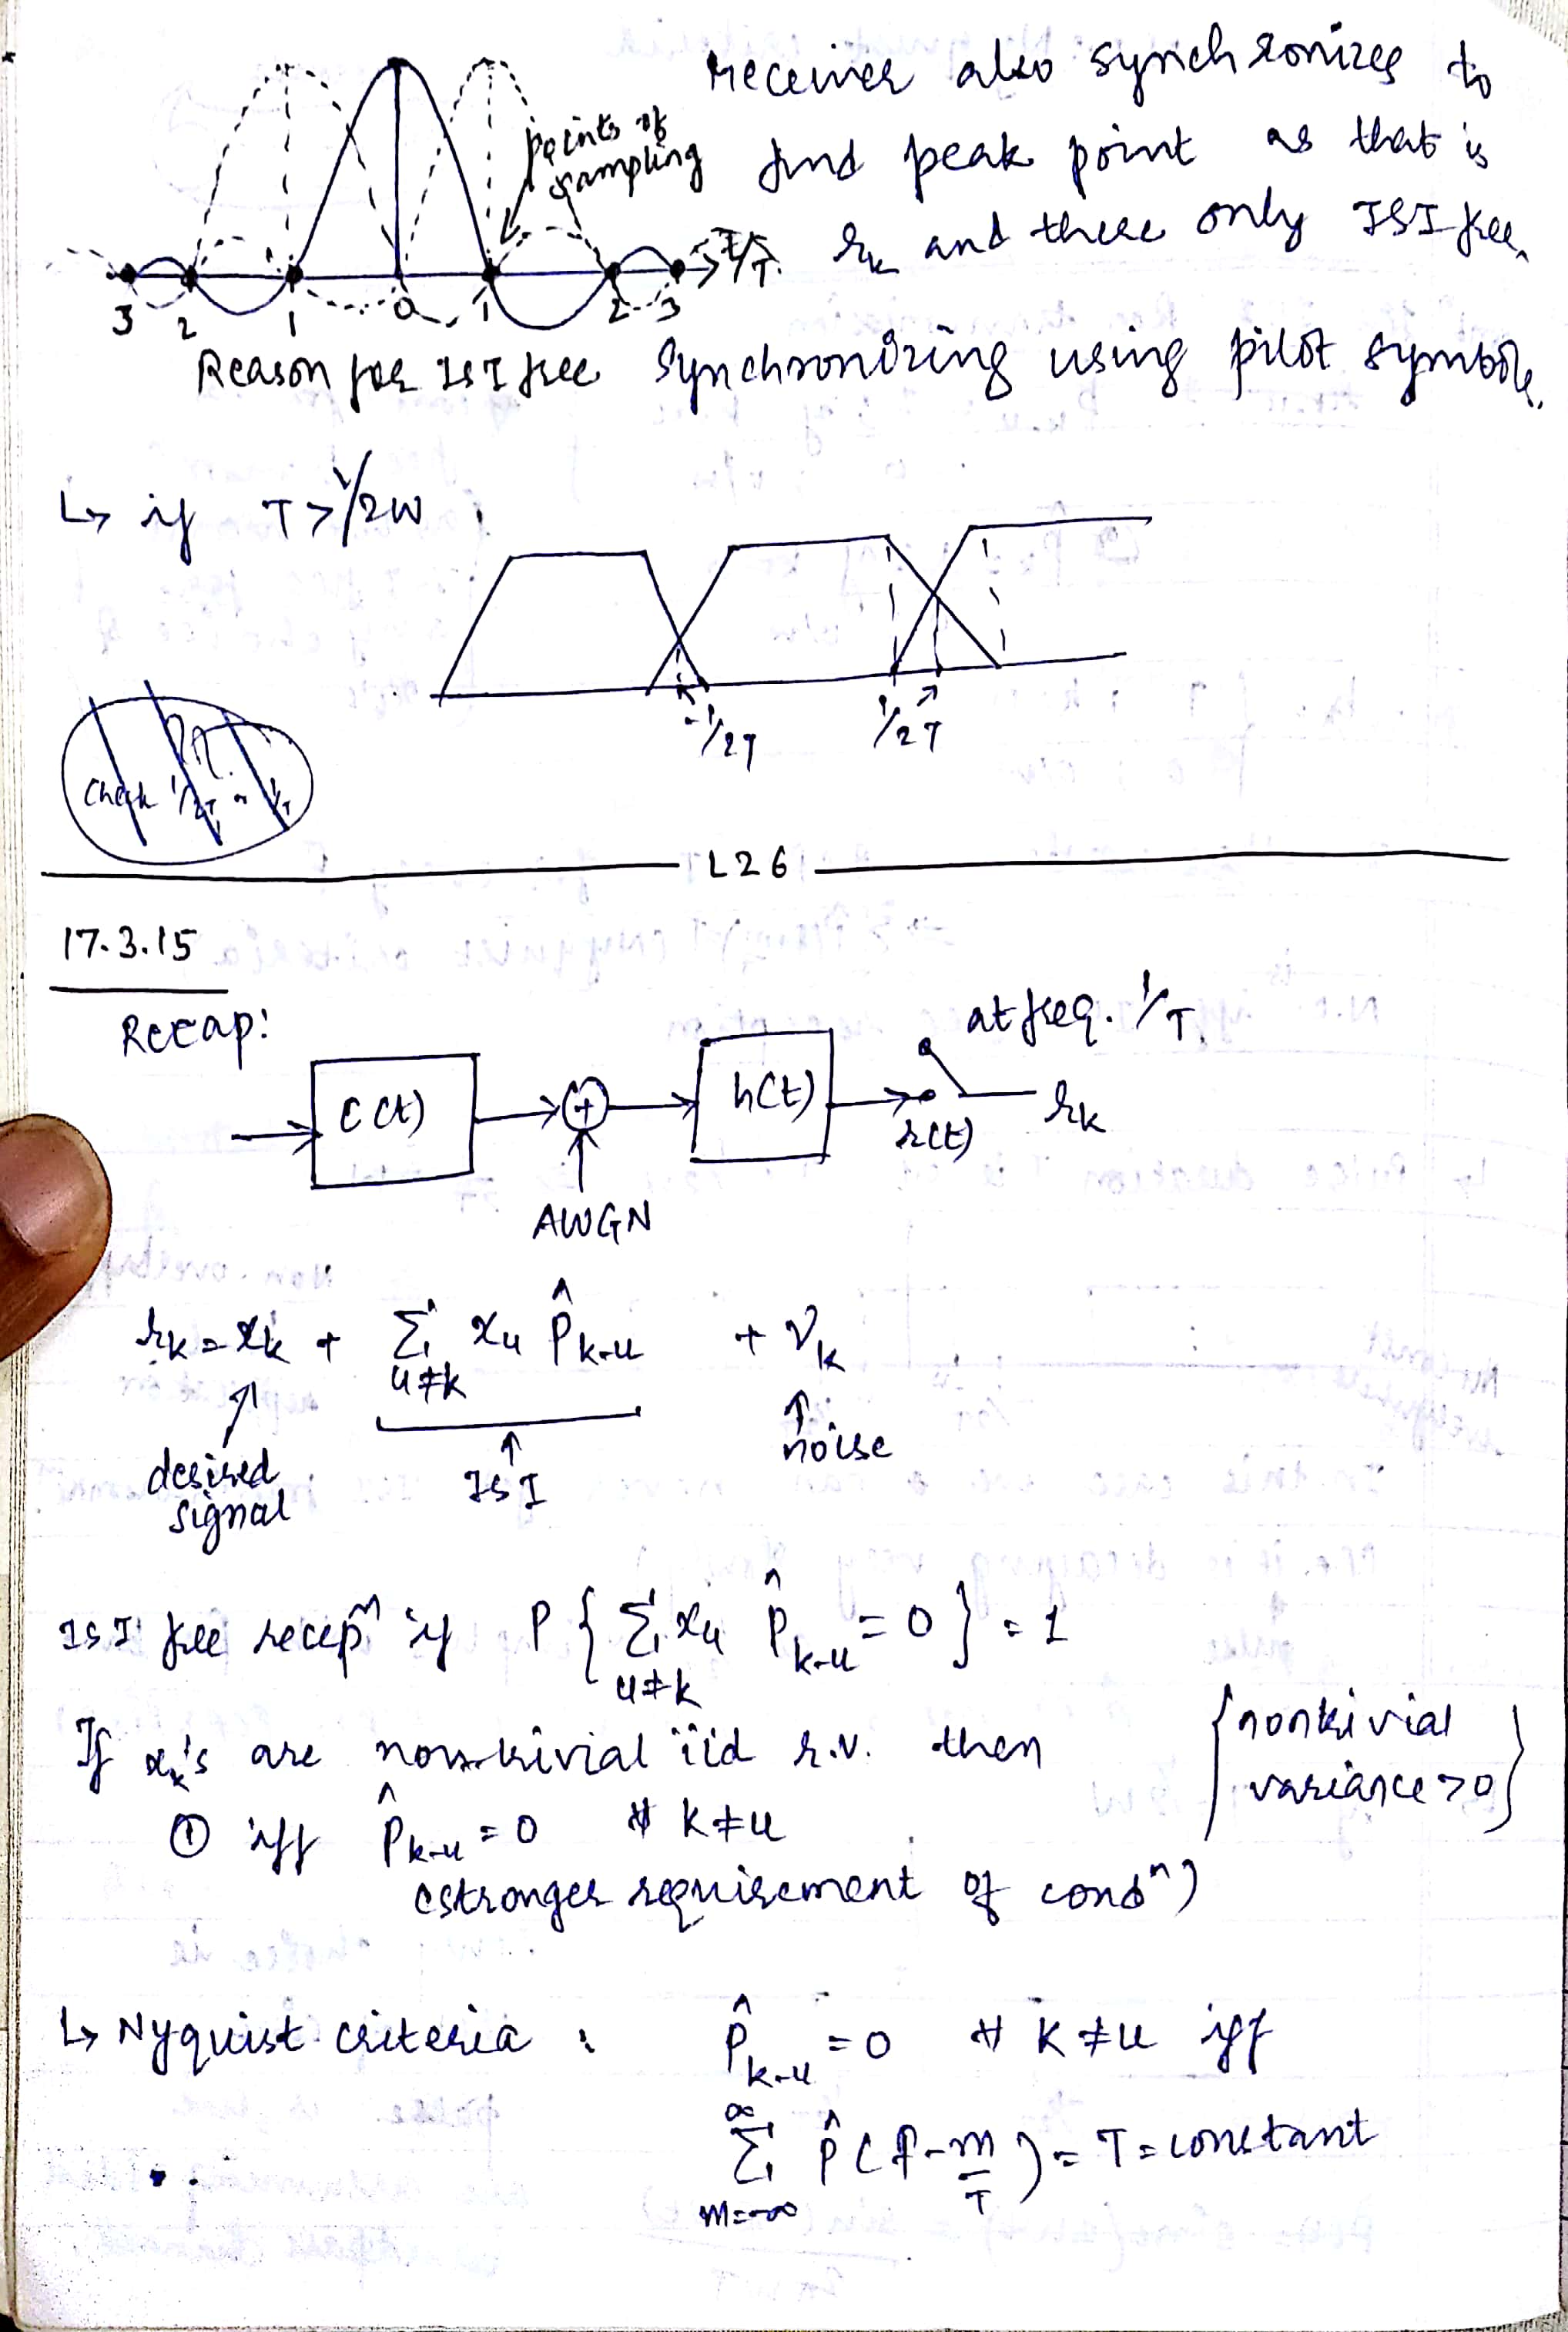 receiver also synchronizes to
points of
sampling
find peak point as that is
r_k and there only ISI free.
t/T
3 2 1 0 1 2 3
Reason for ISI free Synchronizing using pilot symbols.
↳ if T > 1/2W
-1/2T 1/2T
Check 1/2T or 1/T
L26
17.3.15
Recap:
at freq. 1/T.
c(t) + h(t) r(t) r_k
AWGN
r_k = x_k + Σ_{u≠k} x_u p̂_{k-u} + ν_k
desired signal
ISI
noise
ISI free recepⁿ if P { Σ_{u≠k} x_u p̂_{k-u} = 0 } = 1
If x_k's are non-trivial iid r.v. then
{nontrivial
variance > 0}
① iff p̂_{k-u} = 0 ∀ k ≠ u
(stronger requirement of condⁿ)
↳ Nyquist criteria : p̂_{k-u} = 0 ∀ k ≠ u iff
Σ_{m=-∞}^{∞} p̂(f - m/T) = T = constant